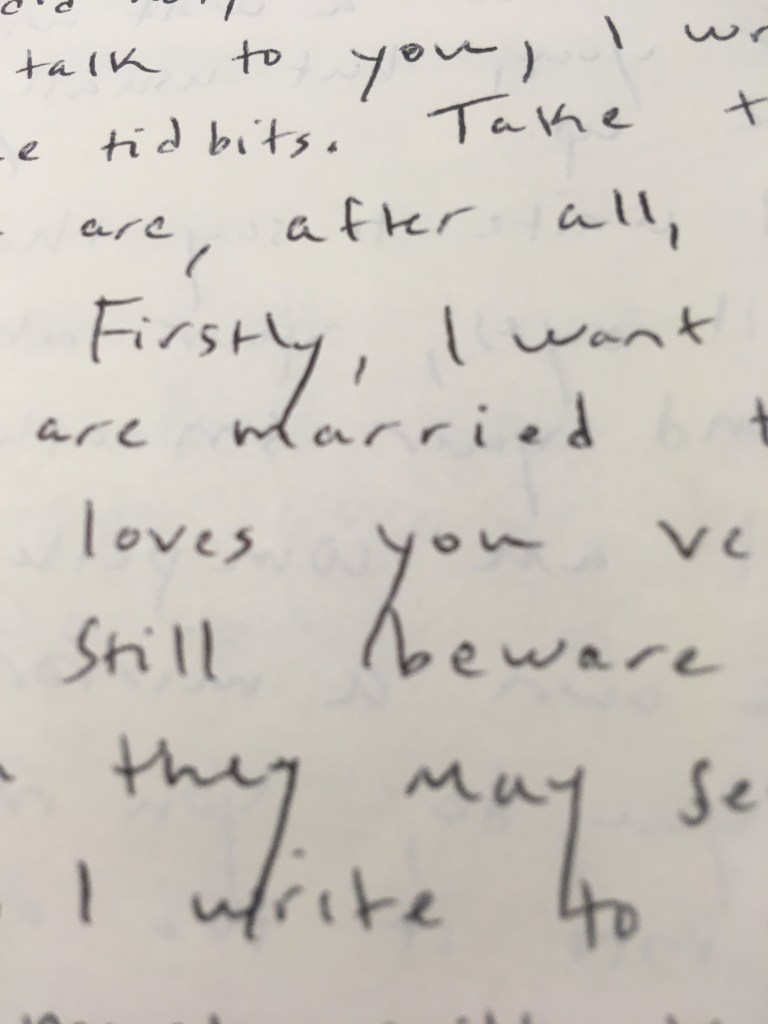 talk to you, I
tidbits. Take
are, after all,
Firstly, I want
are married
loves you
Still beware
they may
I write to